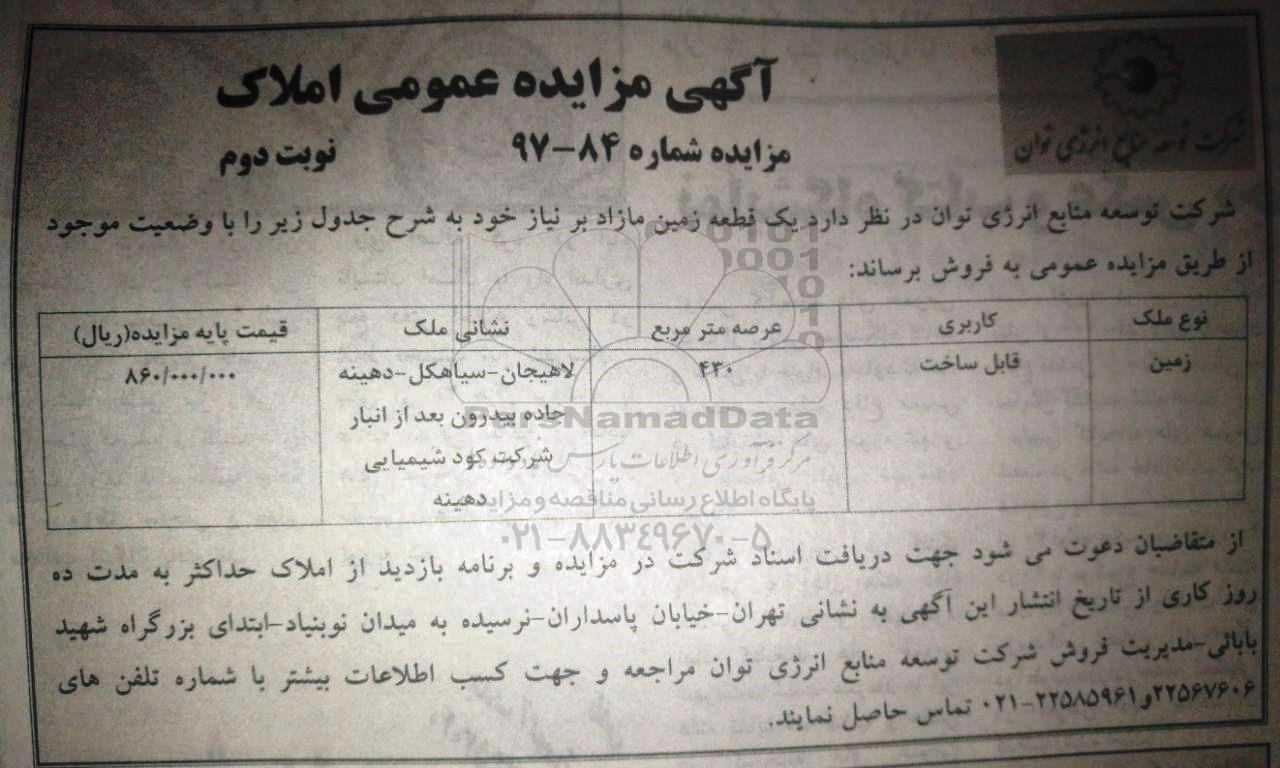 شرکت توسعه منابع انرژی توان
آگهی مزایده عمومی املاک
مزایده شماره ۸۴-۹۷ نوبت دوم
شرکت توسعه منابع انرژی توان در نظر دارد یک قطعه زمین مازاد بر نیاز خود به شرح جدول زیر را با وضعیت موجود
از طریق مزایده عمومی به فروش برساند:
نوع ملک کاربری عرصه متر مربع نشانی ملک قیمت پایه مزایده(ریال)
زمین قابل ساخت ۴۳۰ لاهیجان-سیاهکل-دهینه ۸۶۰/۰۰۰/۰۰۰
جاده بیدرون بعد از انبار
شرکت کود شیمیایی
دهینه
ParsNamadData
مرکز فرآوری اطلاعات پارس
پایگاه اطلاع رسانی مناقصه و مزایده
۰۲۱-۸۸۳۴۹۶۷۰-۵
از متقاضیان دعوت می شود جهت دریافت اسناد شرکت در مزایده و برنامه بازدید از املاک حداکثر به مدت ده
روز کاری از تاریخ انتشار این آگهی به نشانی تهران-خیابان پاسداران-نرسیده به میدان نوبنیاد-ابتدای بزرگراه شهید
بابائی-مدیریت فروش شرکت توسعه منابع انرژی توان مراجعه و جهت کسب اطلاعات بیشتر با شماره تلفن های
۲۲۵۶۷۶۰۶و۲۲۵۸۵۹۶۱-۰۲۱ تماس حاصل نمایند.